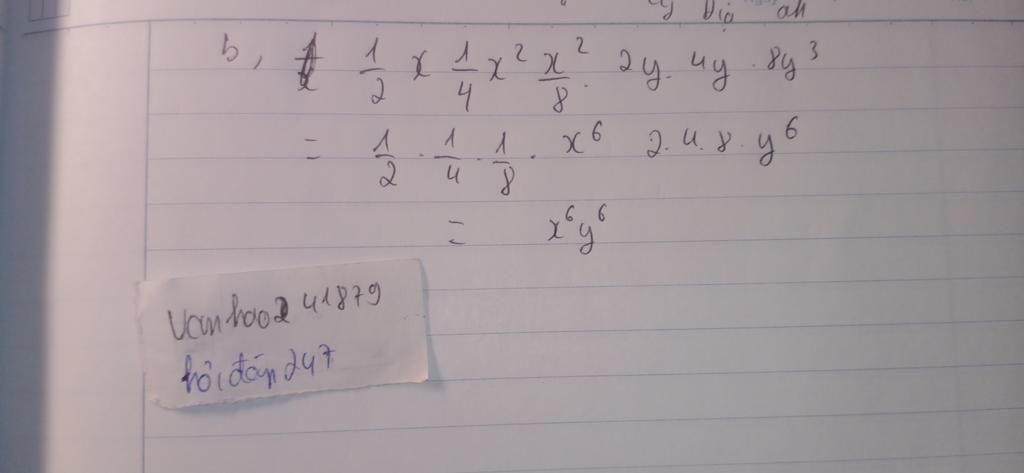 b, 1/2 x 1/4 x² x²/8 . 2y . 4y . 8y³
= 1/2 . 1/4 . 1/8 . x⁶ 2.4.8.y⁶
= x⁶y⁶
vanhao241879
hỏiđáp247